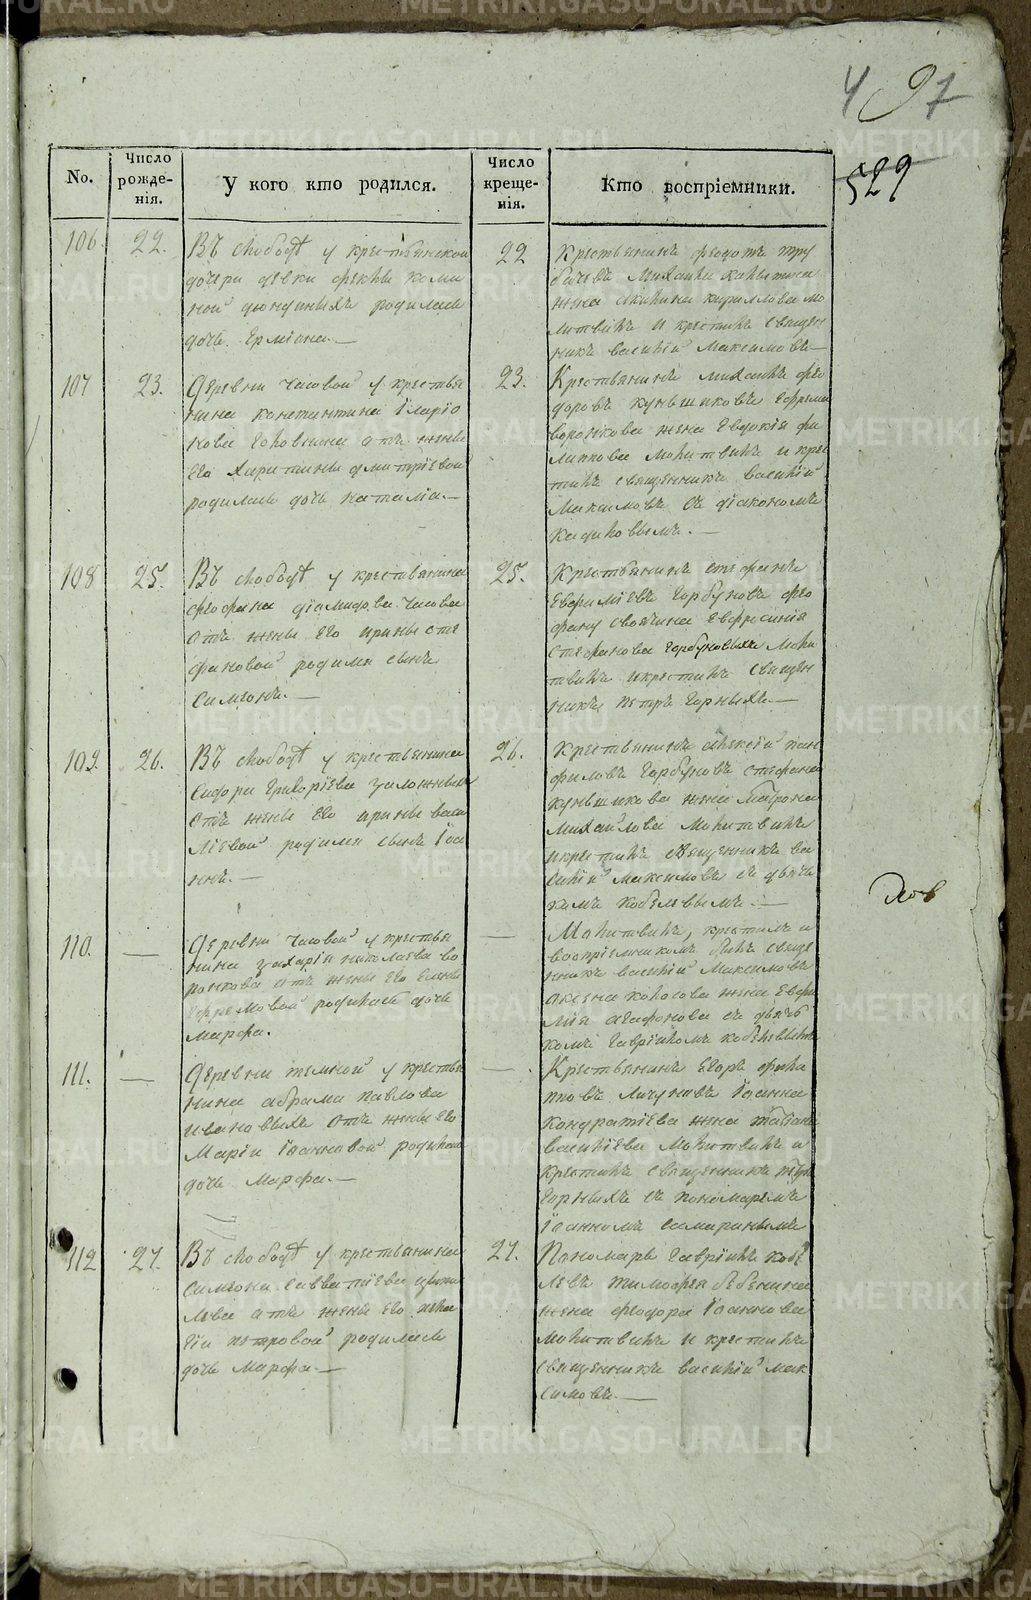 497
529
No.
Число рожде-нія.
У кого кто родился.
Число креще-нія.
Кто воспріемники.
106. 22.
Въ слободѣ у крестьянской
дочери девки Феклы
родилась
дочь Ермiона.—
22
Крестьянинъ Федотъ Тру
бачевъ Михаила
жена Акилина Кирилова мо
литвилъ и крестилъ священ
никъ Василій Максимовъ—
107 23.
Деревни Часовой у крестья
нина Констинтина Іларіо
нова отъ жены
его Харитины Дмитріевой
родилась дочь Наталіа.—
23.
Крестьянинъ Михаилъ Фео
доровъ Куньщиковъ Ефрема
Воронкова жена Евдокія Фи
липова молитвилъ и крес
тилъ священникъ Василій
Максимовъ съ діакономъ
Кадиловымъ.—
108 25.
Въ слободѣ у крестьянина
Феофана Діомидова Часова
отъ жены его Ирины Сте
фановой родился сынъ
Симеонъ.—
25.
Крестьянинъ Стефанъ
Евфиміевъ Горбуновъ Фео
фану своячина Евфросинія
Стефанова Горбуновыхъ моли
твилъ и крестилъ священ
никъ Петръ Горныхъ.—
109. 26.
Въ слободѣ у крестьянина
Сидора Григоріева
отъ жены его Ирины Васи
лісвой родился сынъ Іоа
ннъ.—
26.
Крестьянинъ Алексій Пан
филовъ Горбуновъ Стефана
Куньщикова жена Матрона
Михайлова молитвилъ
и крестилъ священникъ Ва
силій Максимовъ съ дьяч
комъ Кобелевымъ.—
110. —
Деревни Часовой у крестья
нина Захаріи Николаева Во
ронкова отъ жены его Елены
Ефремовой родилась дочь
Марфа.
—
Молитвилъ, крестилъ и
воспріемникомъ былъ свяще
нникъ Василій Максимовъ
жена Евфи
мія Агафонова съ дьяч
комъ Гавріиломъ Кобелевымъ
111. —
Деревни Темной у крестья
нина Абрама Павлова
Ивановыхъ отъ жены его
Маріи Іоанновой родилась
дочь Марфа.—
—
Крестьянинъ Егоръ Фили
повъ Іоанна
Кондратіева жена Татіана
Василіева молитвилъ и
крестилъ священникъ Петръ
Горныхъ съ пономаремъ
Іоанномъ Самаринымъ
112 27.
Въ слободѣ у крестьянина
Симеона Савватіева
отъ жены его Пела
гіи Петровой родилась
дочь Марфа.—
27.
Пономарь Гавріилъ Кобе
левъ Тимофея Бебенина
жена Феодора Іоаннова
молитвилъ и крестилъ
священникъ Василій Мак
симовъ.—
METRIKI.GASO-URAL.RU